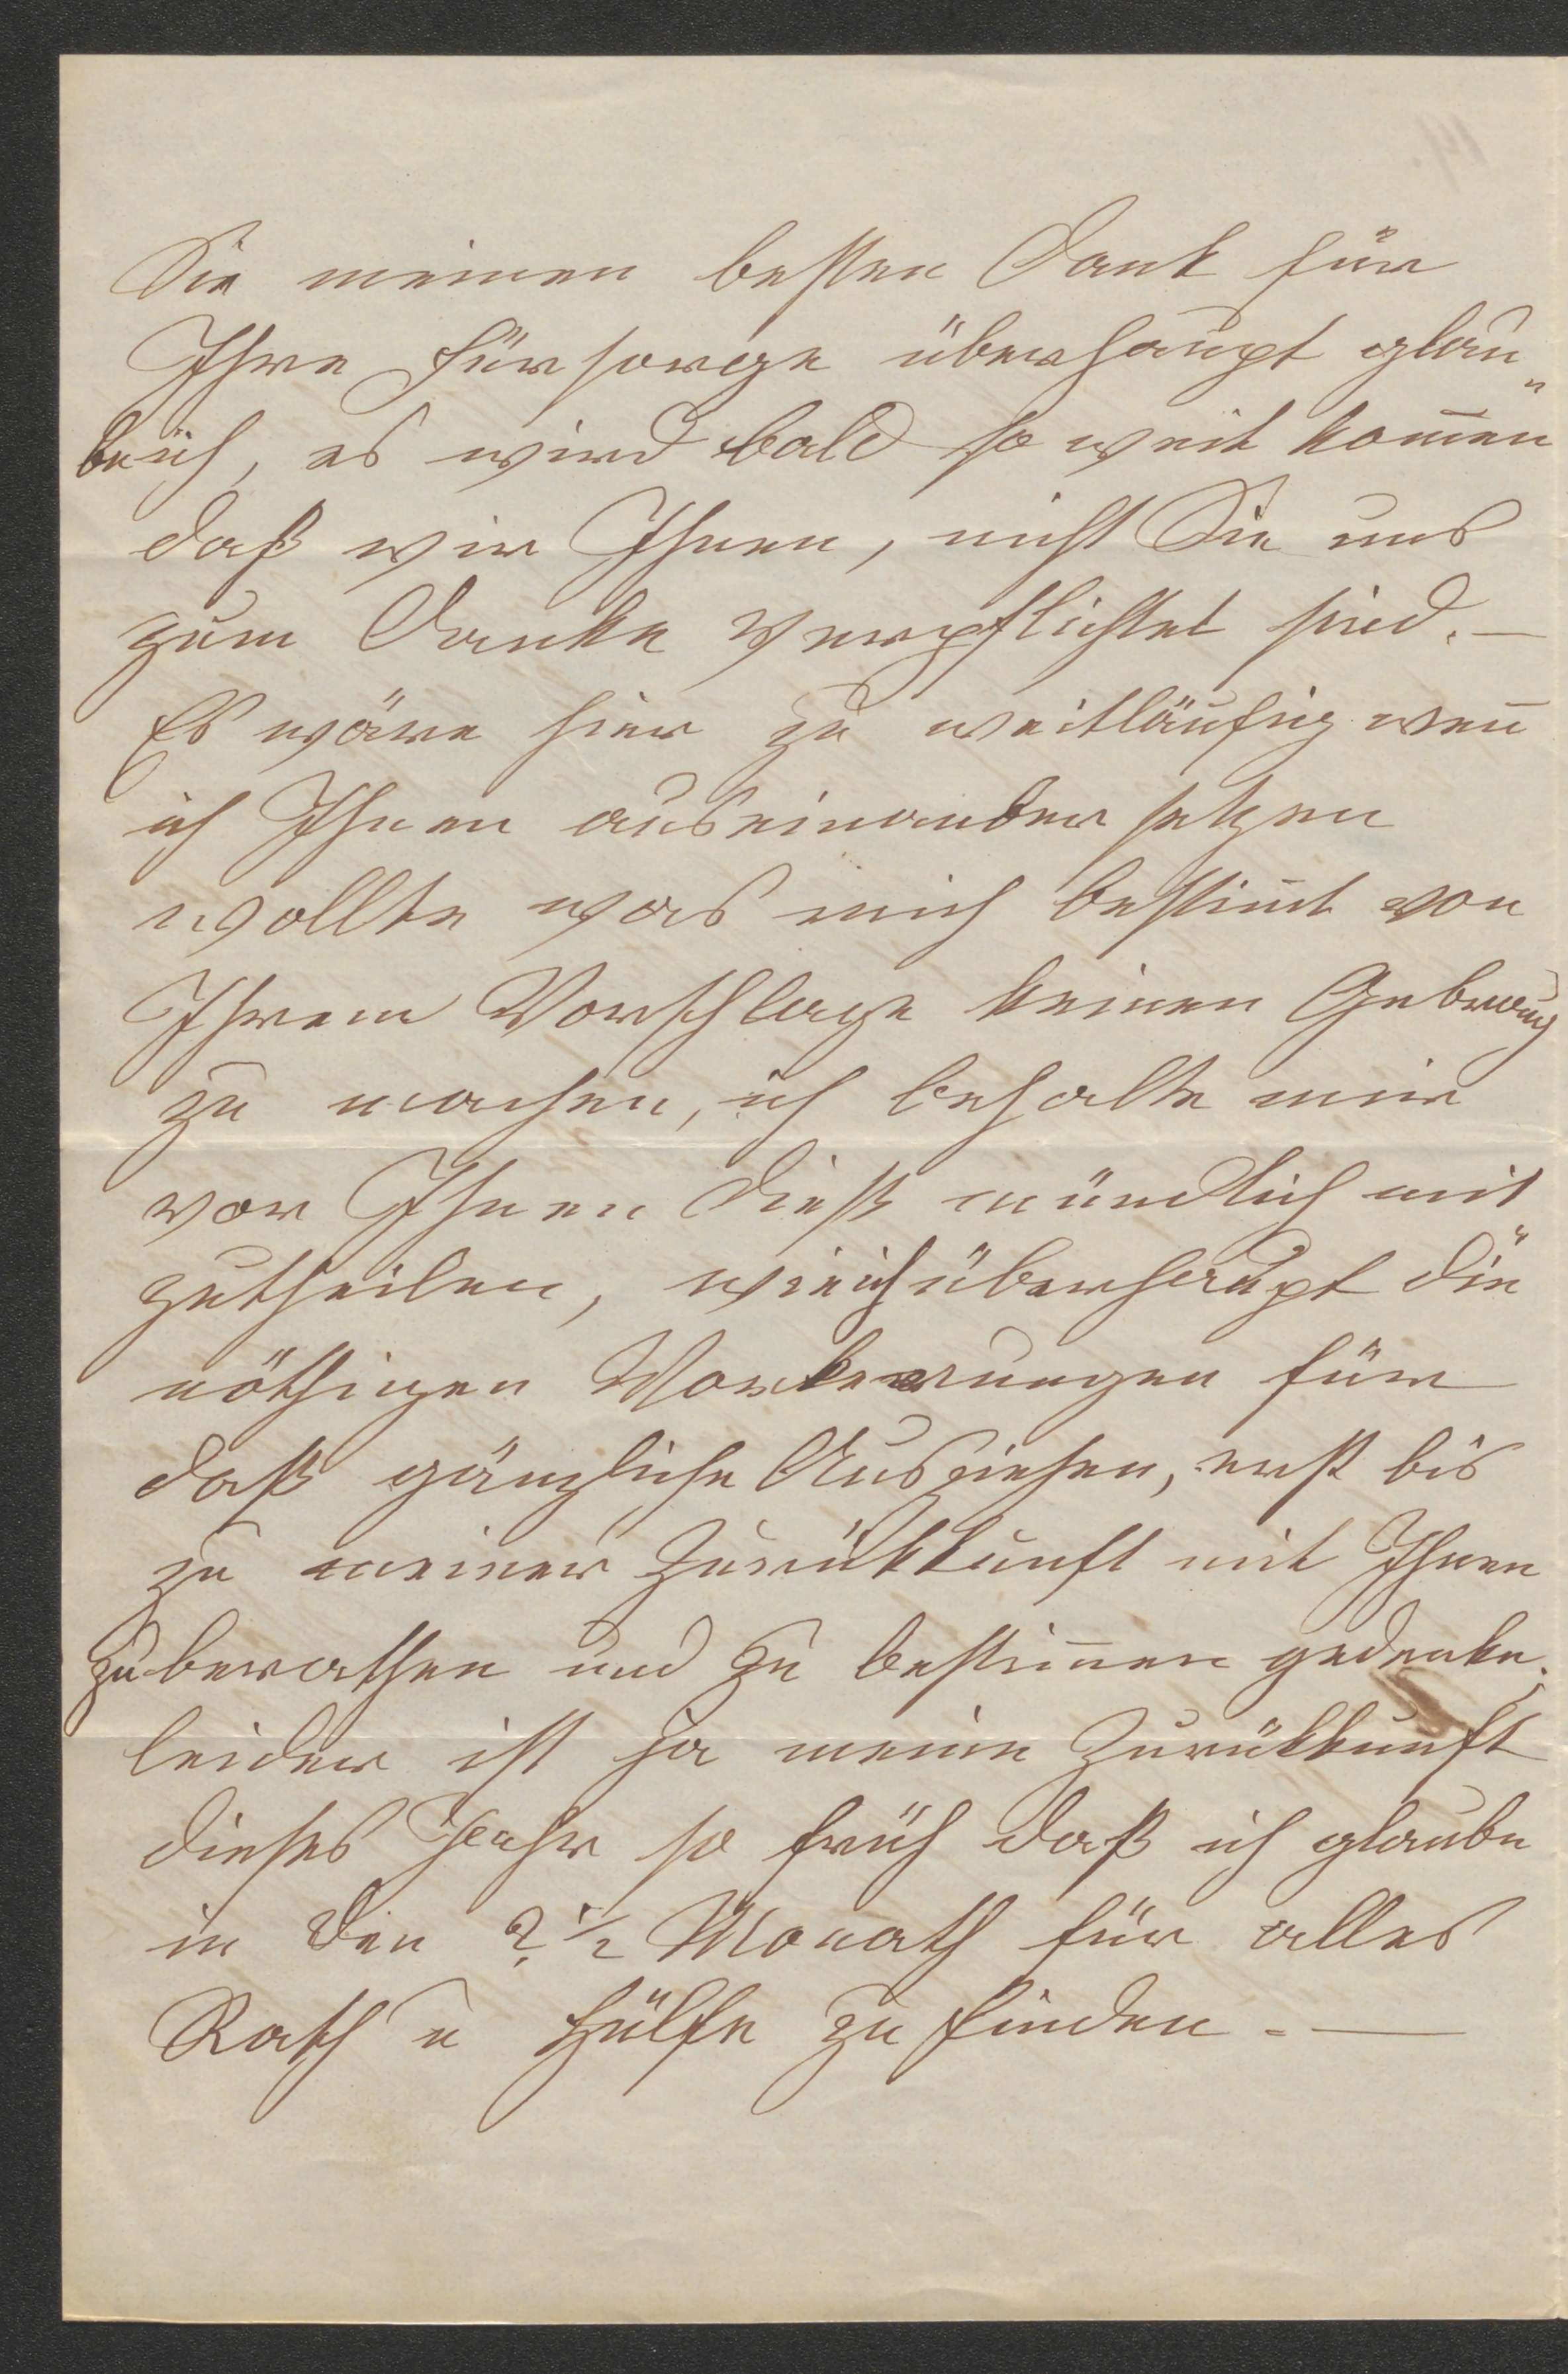 Sie meinen besten Dank für
Ihre Fürsorge überhaupt glau„
be ich, es wird bald so weit kom̅en
daß wir Ihnen, nicht Sie uns
zum Danke verpflichtet sind. —
Es wäre hier zu weitläufig wen̅
ich Ihnen auseinander setzen
wollte was mich bestim̅t von
Ihrem Vorschlage keinen Gebrauch
zu machen, ich behalte mir
vor Ihnen dieß mündlich mit
zutheilen, wie ich überhaupt die"
nöthigen Vorkerungen für
daß gänzliche Ausziehen, erst bis
zu meiner Zurükkunft mit Ihnen
zu berathen und zu bestim̅en gedenke;
leider ist ja meine Zurükkunft
dieses Jahr so früh daß ich glaube
in den 2 ½ Monath für alles
Rath u Hülfe zu finden. —